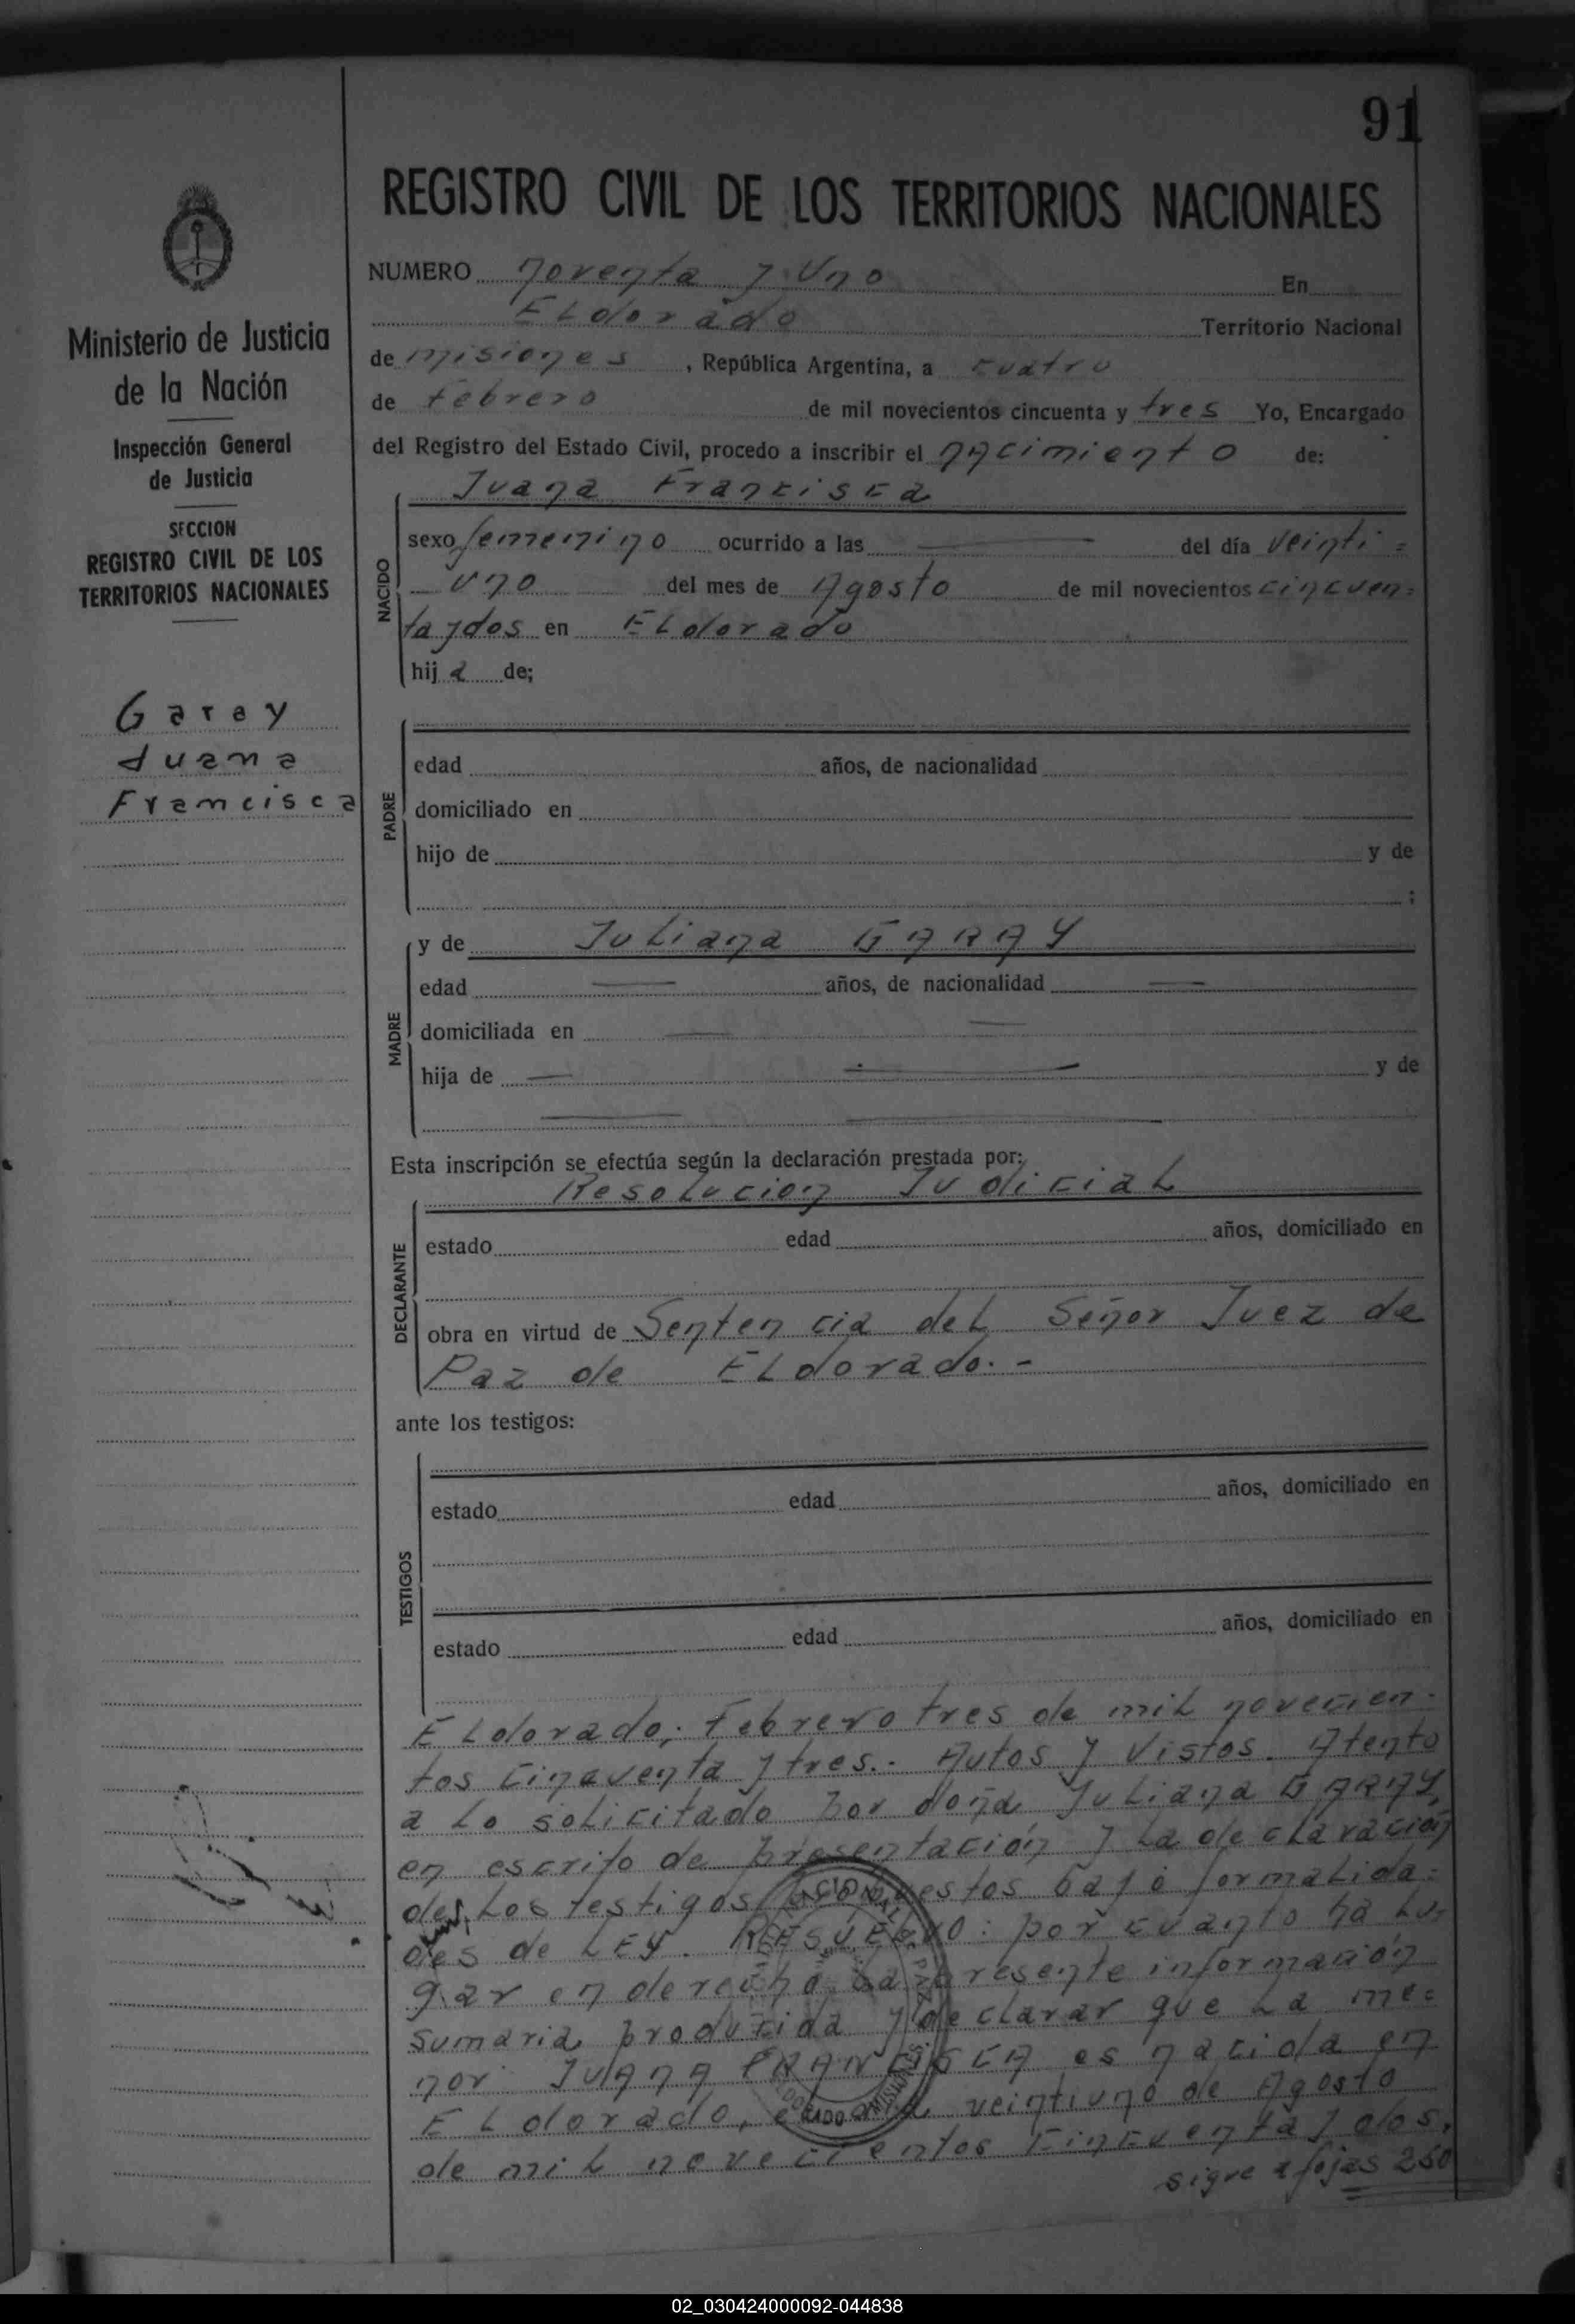 91
REGISTRO CIVIL DE LOS TERRITORIOS NACIONALES
Ministerio de Justicia
de la Nación
Inspección General
de Justicia
SECCION
REGISTRO CIVIL DE LOS
TERRITORIOS NACIONALES
Garay
Juana
Francisca
NUMERO noventa y Uno En
ELdorado Territorio Nacional
de misiones, República Argentina, a cuatro
de Febrero de mil novecientos cincuenta y tres Yo, Encargado
del Registro del Estado Civil, procedo a inscribir el nacimiento de:
Juana Francisca
NACIDO
sexo femenino ocurrido a las — del día veinti=
uno del mes de Agosto de mil novecientos cincuen=
ta y dos en ELdorado
hija de;
PADRE
edad años, de nacionalidad
domiciliado en
hijo de y de
;
MADRE
y de Juliana GARAY
edad — años, de nacionalidad —
domiciliada en — —
hija de — — y de
— —
Esta inscripción se efectúa según la declaración prestada por:
Resolucion Judicial
DECLARANTE
estado edad años, domiciliado en
obra en virtud de Sentencia del Señor Juez de
Paz de ELdorado.-
ante los testigos:
TESTIGOS
estado edad años, domiciliado en
estado edad años, domiciliado en
ELdorado, Febrero tres de mil novecien-
tos cincuenta y tres.- Autos y Vistos. Atento
a lo solicitado por doña Juliana GARAY,
en escrito de presentación y la declaración
de los testigos bajo formalida=
des de LEY. RESUELVO: por cuanto ha lu-
gar en derecho la presente información
sumaria producida y declarar que la me=
nor JUANA FRANCISCA es nacida en
ELdorado, el día veintiuno de Agosto
de mil novecientos cincuenta y dos,
sigue a fojas 250
02_030424000092-044838